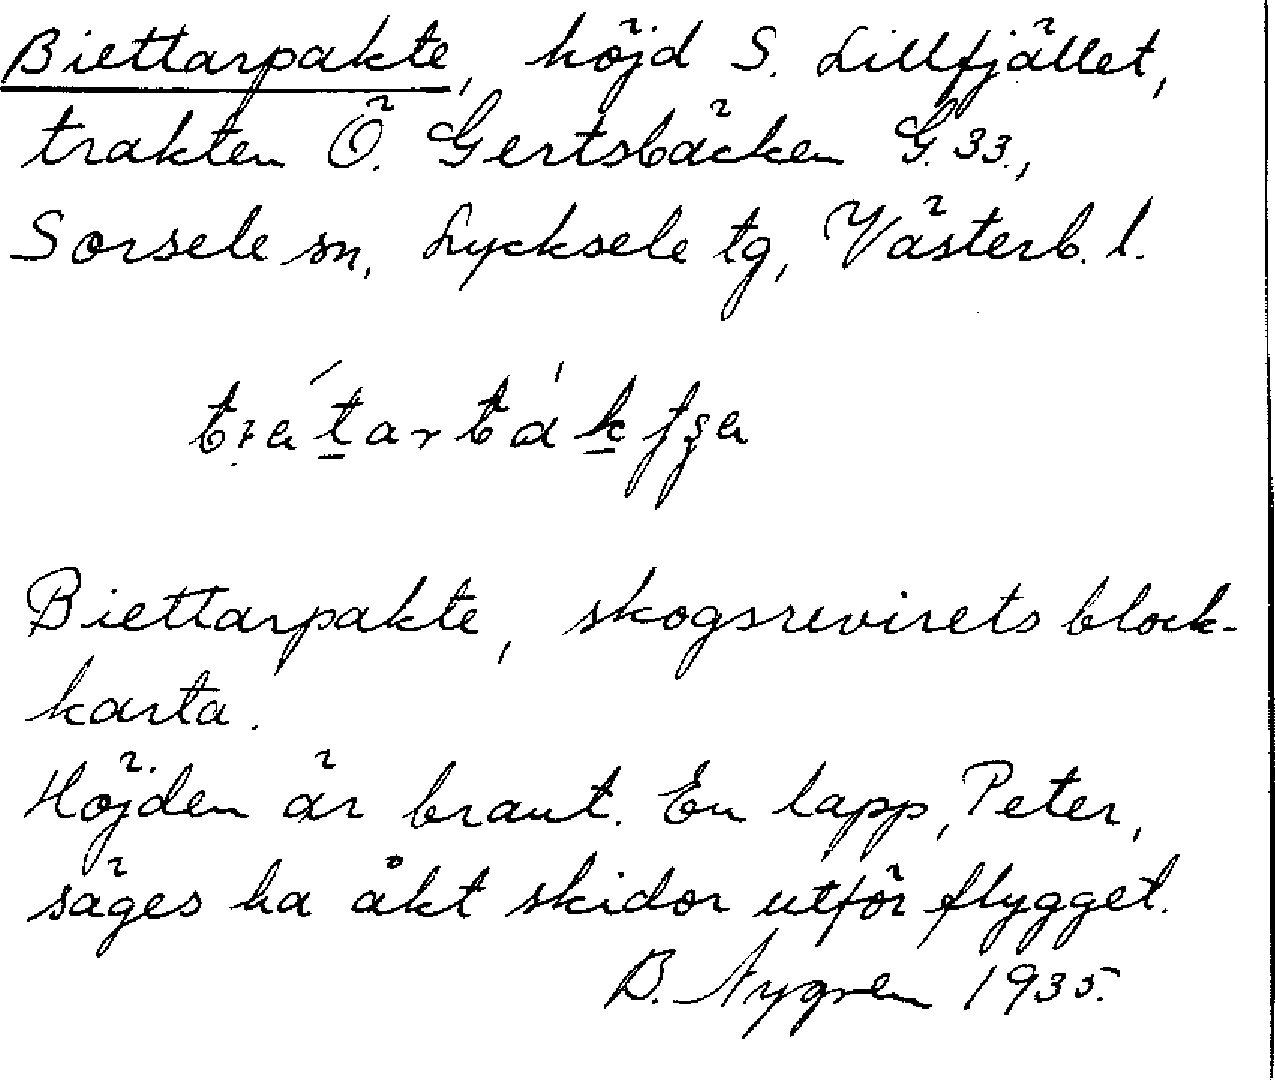 Biettarpakte, höjd S. Lillfjället,
trakten Ö. Gertsbäcken G. 33.,
Sorsele sn, Lycksele tg, Västerb. l.
Biettarpakte, skogsrevirets block-
karta.
Höjden är brant. En lapp, Peter,
säges ha åkt skidor utför flygget.
B. Nygren 1935.